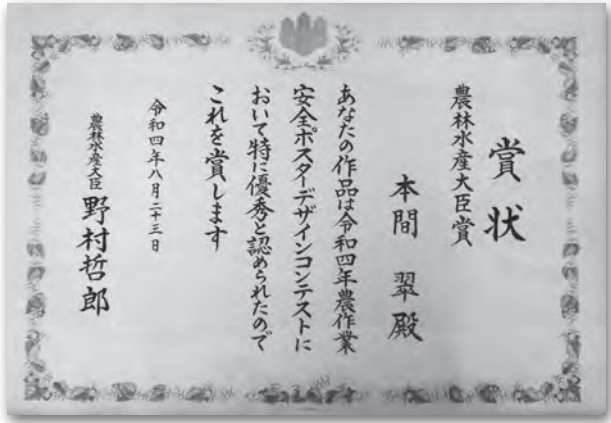 賞状
農林水産大臣賞
本間 翠殿
あなたの作品は令和四年農作業
安全ポスターデザインコンテストに
おいて特に優秀と認められたので
これを賞します
令和四年八月二十三日
農林水産大臣 野村哲郎